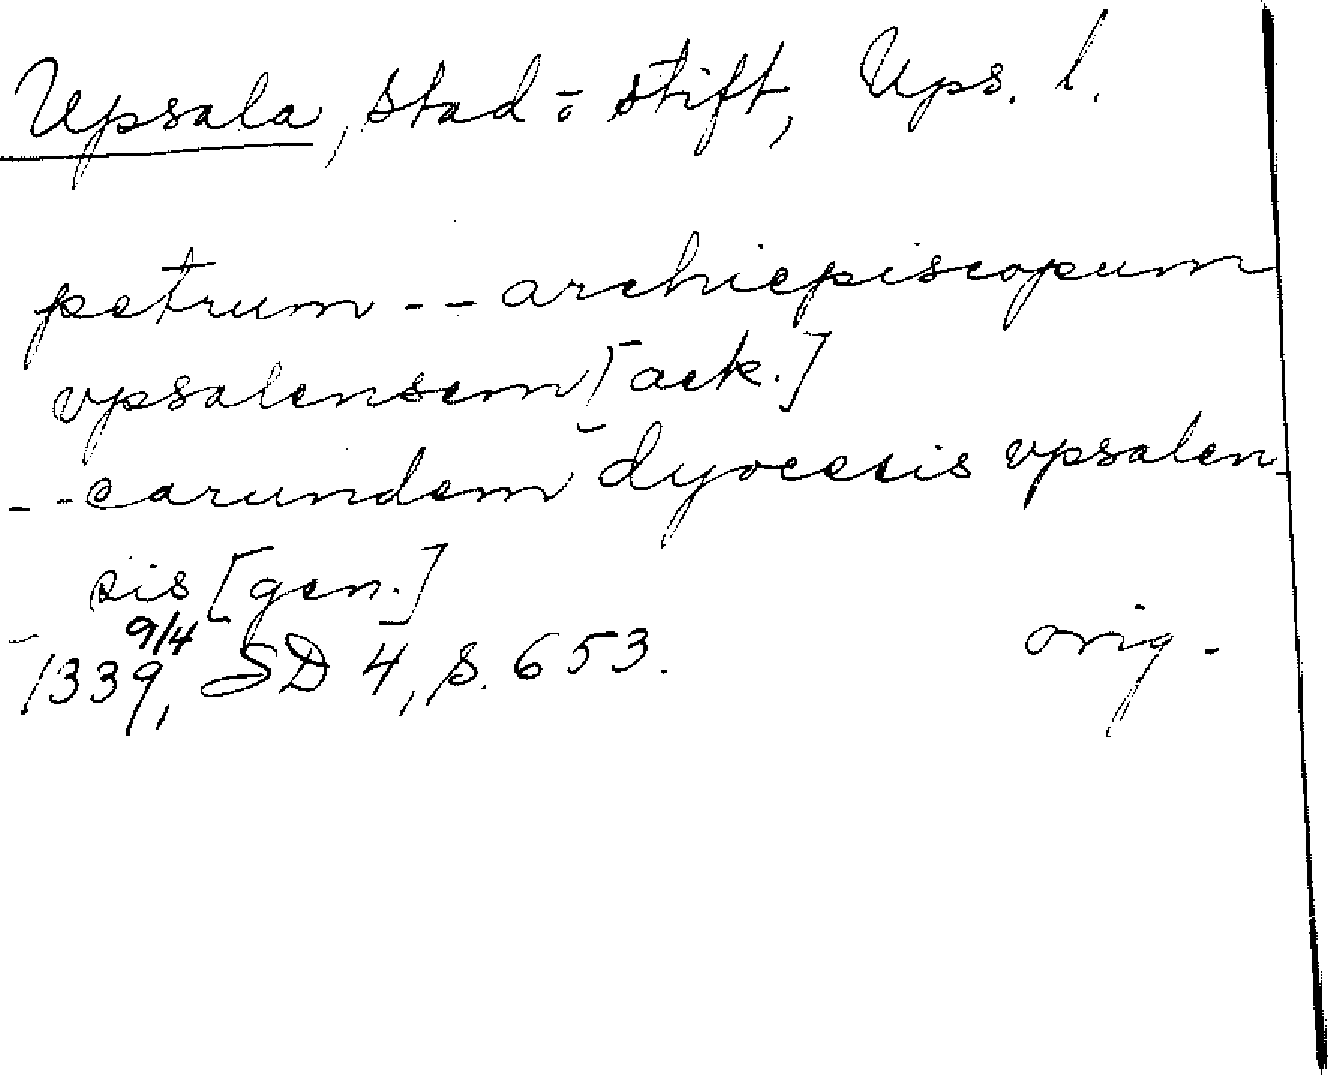 Upsala, stad o stift, Ups. l.
petrum -- archiepiscopum
vpsalensem [ack.]
-- earundem dyocesis vpsalen-
sis [gen.]
9/4
1339, SD 4, s. 653. orig.